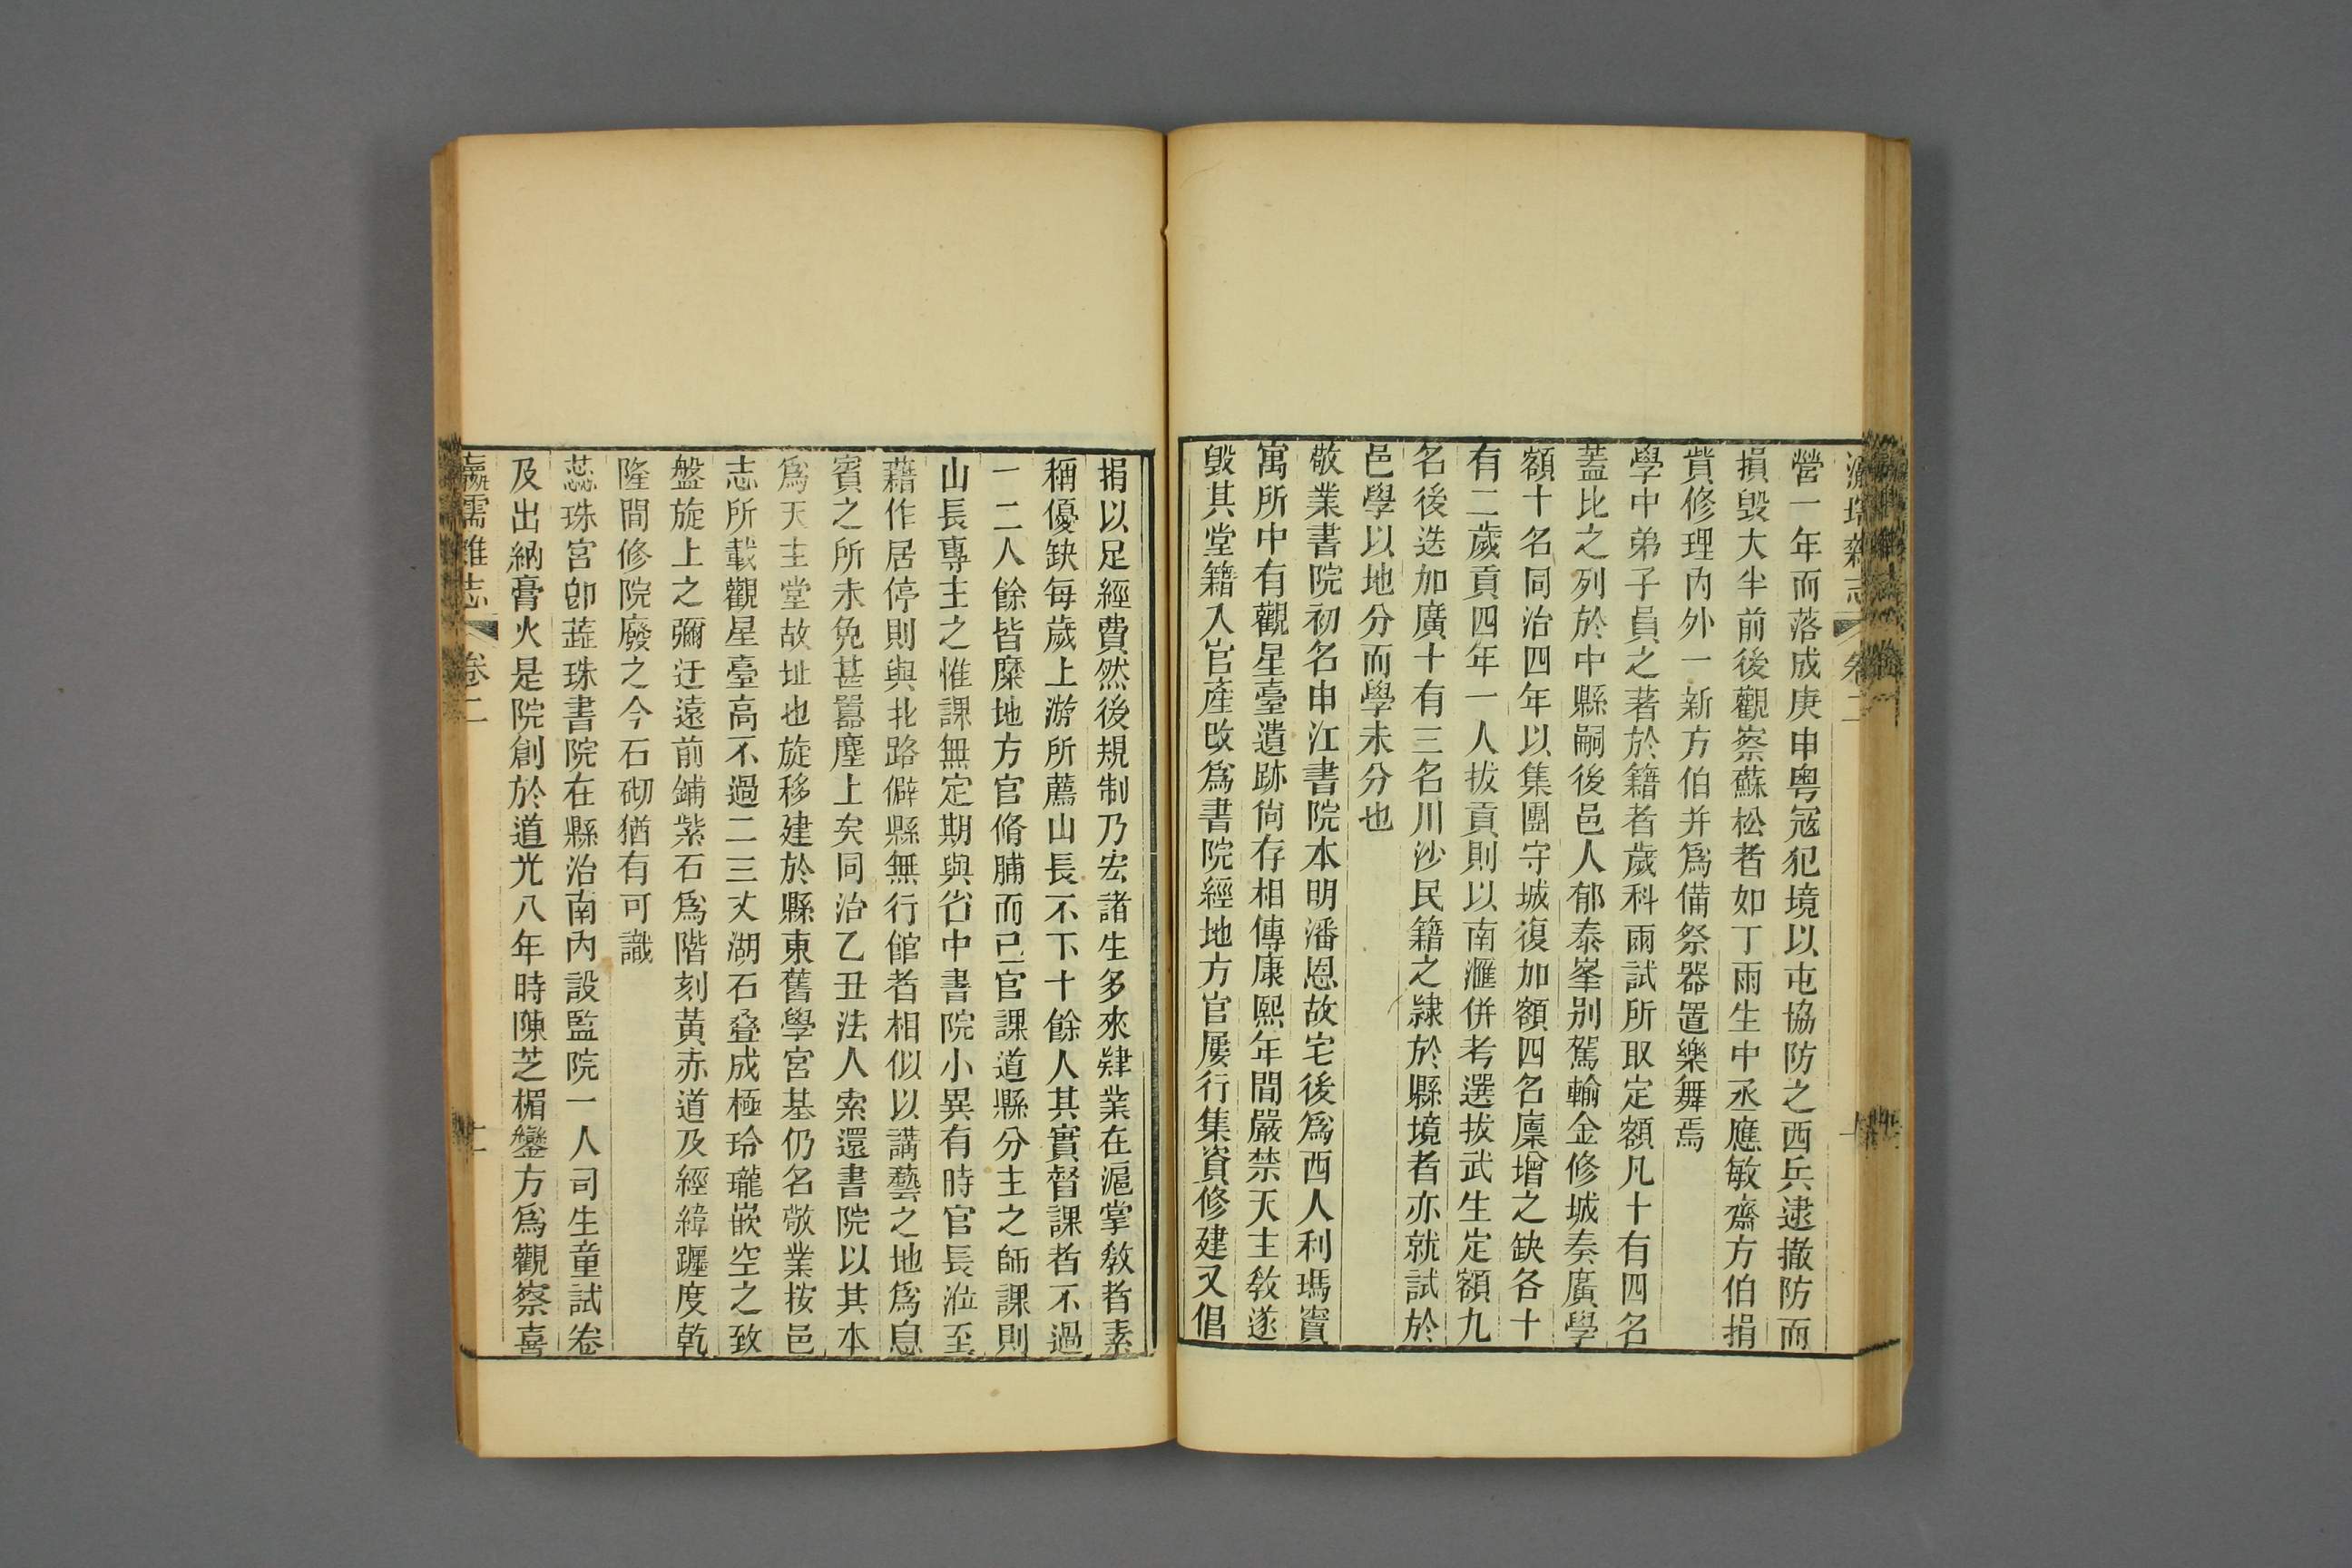 營一年而落成庚申粤寇犯境以屯協防之西兵逮撤防而
損毁大半前後觀察蘇松者如丁雨生中丞應敏齋方伯捐
貲修理内外一新方伯并爲備祭器置樂舞焉
學中弟子員之著於籍者歲科兩試所取定額凡十有四名
蓋比之列於中縣嗣後邑人郁泰峯别駕輸金修城奏廣學
額十名同治四年以集團守城復加額四名廩增之缺各十
有二歲貢四年一人拔貢則以南滙併考選拔武生定額九
名後迭加廣十有三名川沙民籍之隸於縣境者亦就試於
邑學以地分而學未分也
敬業書院初名申江書院本明潘恩故宅後爲西人利瑪竇
寓所中有觀星臺遺跡尙存相傳康熙年間嚴禁天主敎遂
毁其堂籍入官產改爲書院經地方官屢行集資修建又倡
捐以足經費然後規制乃宏諸生多來肄業在滬掌敎者素
稱優缺每歲上游所薦山長不下十餘人其實督課者不過
一二人餘皆糜地方官脩脯而已官課道縣分主之師課則
山長專主之惟課無定期與省中書院小異有時官長涖至
藉作居停則與北路僻縣無行館者相似以講藝之地爲息
賓之所未免甚囂塵上矣同治乙丑法人索還書院以其本
爲天主堂故址也旋移建於縣東舊學宮基仍名敬業按邑
志所載觀星臺高不過二三丈湖石叠成極玲瓏嵌空之致
盤旋上之彌迂遠前鋪紫石爲階刻黃赤道及經緯躔度乾
隆間修院廢之今石砌猶有可識
蕊珠宮卽蕋珠書院在縣治南内設監院一人司生童試卷
及出納膏火是院創於道光八年時陳芝楣鑾方爲觀察喜
瀛壖雜志 卷二